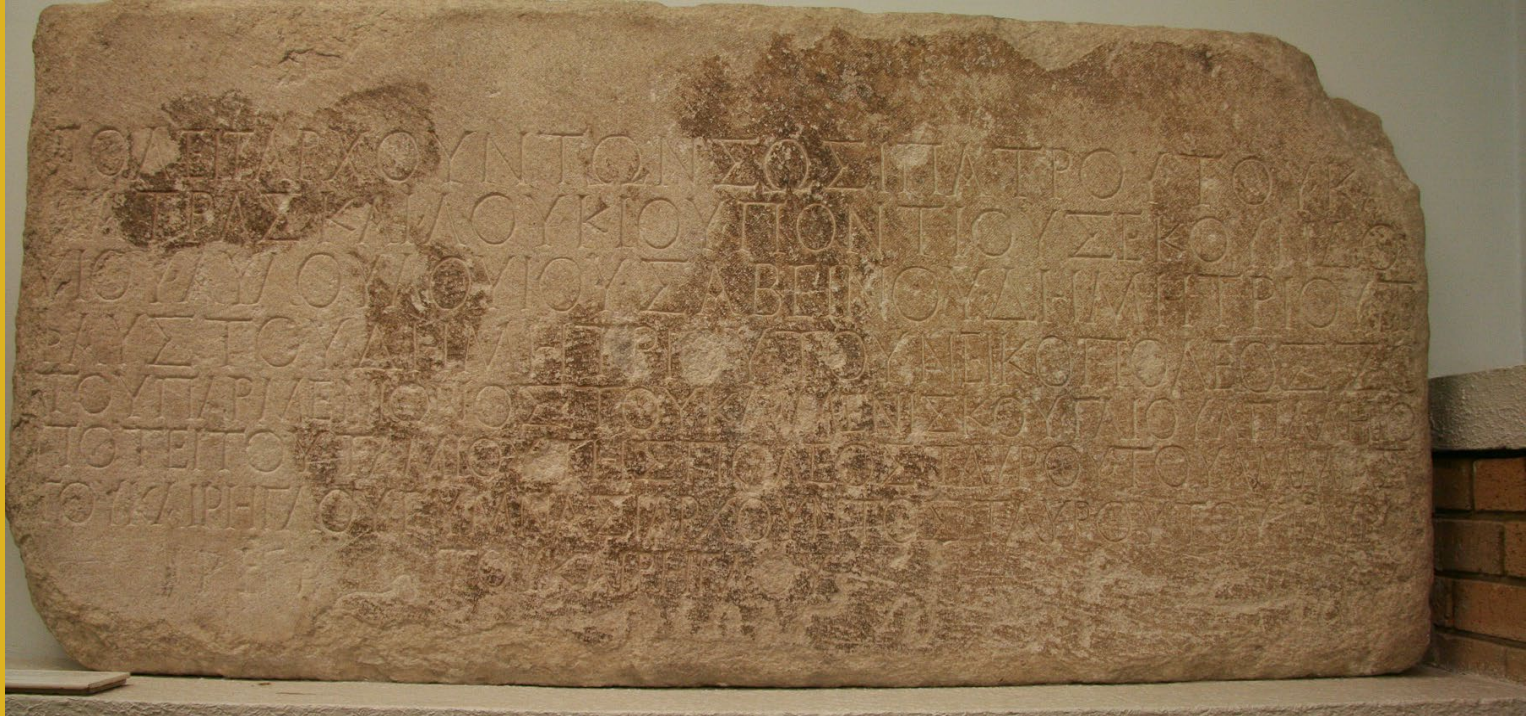 ΠΟΛΕΙΤΑΡΧΟΥΝΤΩΝ ΣΩΣΙΠΑΤΡΟΥ ΤΟΥ Κ
ΠΑΤΡΑΣ ΚΑΙ ΛΟΥΚΙΟΥ ΠΟΝΤΙΟΥ ΣΕΚΟΥΝΔΟΥ
ΥΙΟΥ ΑΥΛΟΥ ΑΟΥΙΟΥ ΣΑΒΕΙΝΟΥ ΔΗΜΗΤΡΙΟΥ
ΦΑΥΣΤΟΥ ΔΗΜΗΤΡΙΟΥ ΤΟΥ ΝΕΙΚΟΠΟΛΕΟΣ Ζ
ΤΟΥ ΠΑΡΜΕΝΙΩΝΟΣ ΤΟΥ ΚΑΙ ΜΕΝΙΣΚΟΥ ΓΑΙΟΥ
ΠΟΤΕΙΤΟΥ ΤΑΜΙΟΥ ΤΗΣ ΠΟΛΕΟΣ ΤΑΥΡΟΥ ΤΟΥ ΑΜΜΙΑΣ
ΤΟΥ ΚΑΙ ΡΗΓΛΟΥ ΓΥΜΝΑΣΙΑΡΧΟΥΝΤΟΣ ΤΑΥΡΟΥ ΤΟΥ